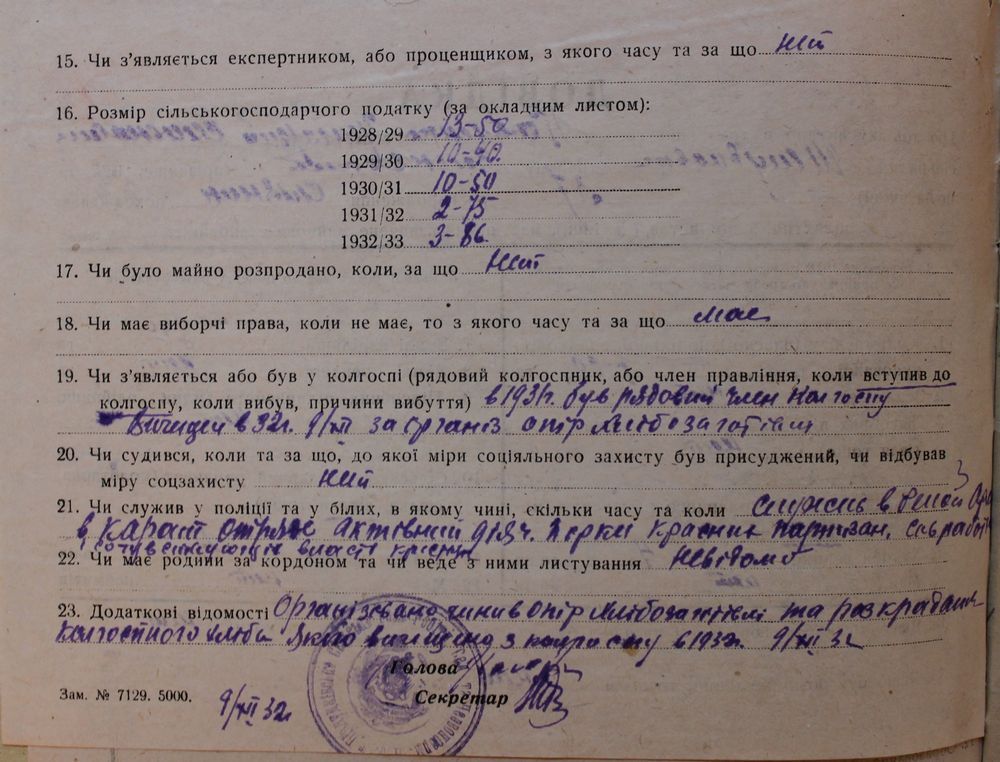 15. Чи з'являється експертником, або проценщиком, з якого часу та за що ній
16. Розмір сільськогосподарчого податку (за окладним листом):
1928/29 13-50
1929/30 10-90
1930/31 10-50
1931/32 2-75
1932/33 3-86
17. Чи було майно розпродано, коли, за що ній
18. Чи має виборчі права, коли не має, то з якого часу та за що має
19. Чи з'являється або був у колгоспі (рядовий колгоспник, або член правління, коли вступив до
колгоспу, коли вибув, причини вибуття) в 1931г. був рядовий член колгоспу
в 32г. 9/XII за організ опір хлібозаготівли
20. Чи судився, коли та за що, до якої міри соціяльного захисту був присуджений, чи відбував
міру соцзахисту ній
21. Чи служив у поліції та у білих, в якому чині, скільки часу та коли в белой
в карат актівний партизан,
власті
22. Чи має родини за кордоном та чи веде з ними листування невідомо
23. Додаткові відомості Організовано чинив опір хлібозаготівлі та розкрадання
колгоспного хліба з колгоспу в 1932г. 9/XII 32
Голова
Секретар
Зам. № 7129. 5000. 9/XII 32г